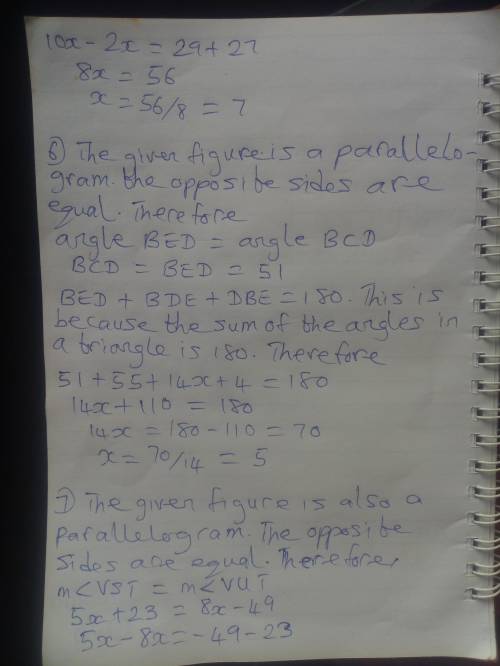 10x - 2x = 29 + 27
8x = 56
x = 56/8 = 7
6) The given figure is a parallelo-
gram. the opposite sides are
equal. Therefore
angle BED = angle BCD
BCD = BED = 51
BED + BDE + DBE = 180. This is
because the sum of the angles in
a triangle is 180. Therefore
51 + 55 + 14x + 4 = 180
14x + 110 = 180
14x = 180 - 110 = 70
x = 70/14 = 5
7) The given figure is also a
parallelogram. The opposite
sides are equal. Therefore,
m<VST = m<VUT
5x + 23 = 8x - 49
5x - 8x = - 49 - 23